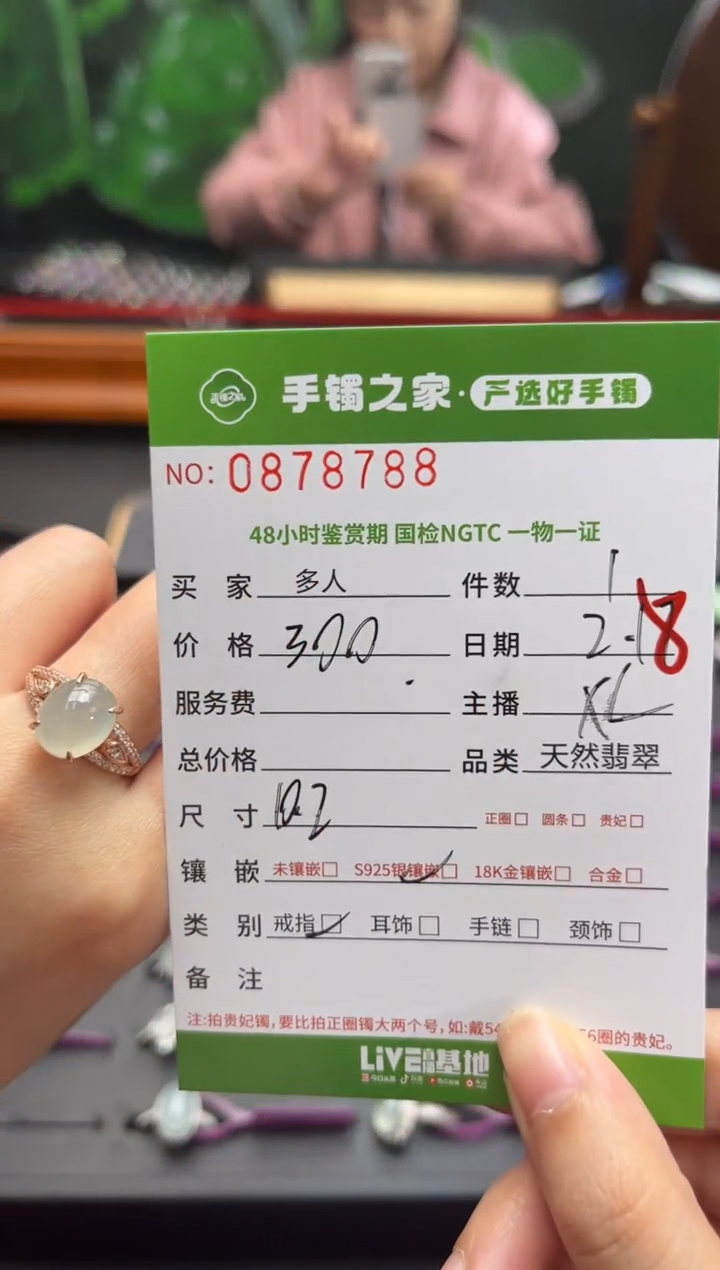 手镯之家·严选好手镯
NO: 0878788
48小时鉴赏期 国检NGTC 一物一证
买 家 多人 件数 1
价 格 300 日期 2.18
服务费 主播 XL
总价格 品类 天然翡翠
尺 寸 10.2 正圈□ 圆条□ 贵妃□
镶 嵌 未镶嵌□ S925银镶嵌☑ 18K金镶嵌□ 合金□
类 别 戒指☑ 耳饰□ 手链□ 颈饰□
备 注
注:拍贵妃镯,要比拍正圈镯大两个号,如:戴54 6圈的贵妃。
LiVE 基地